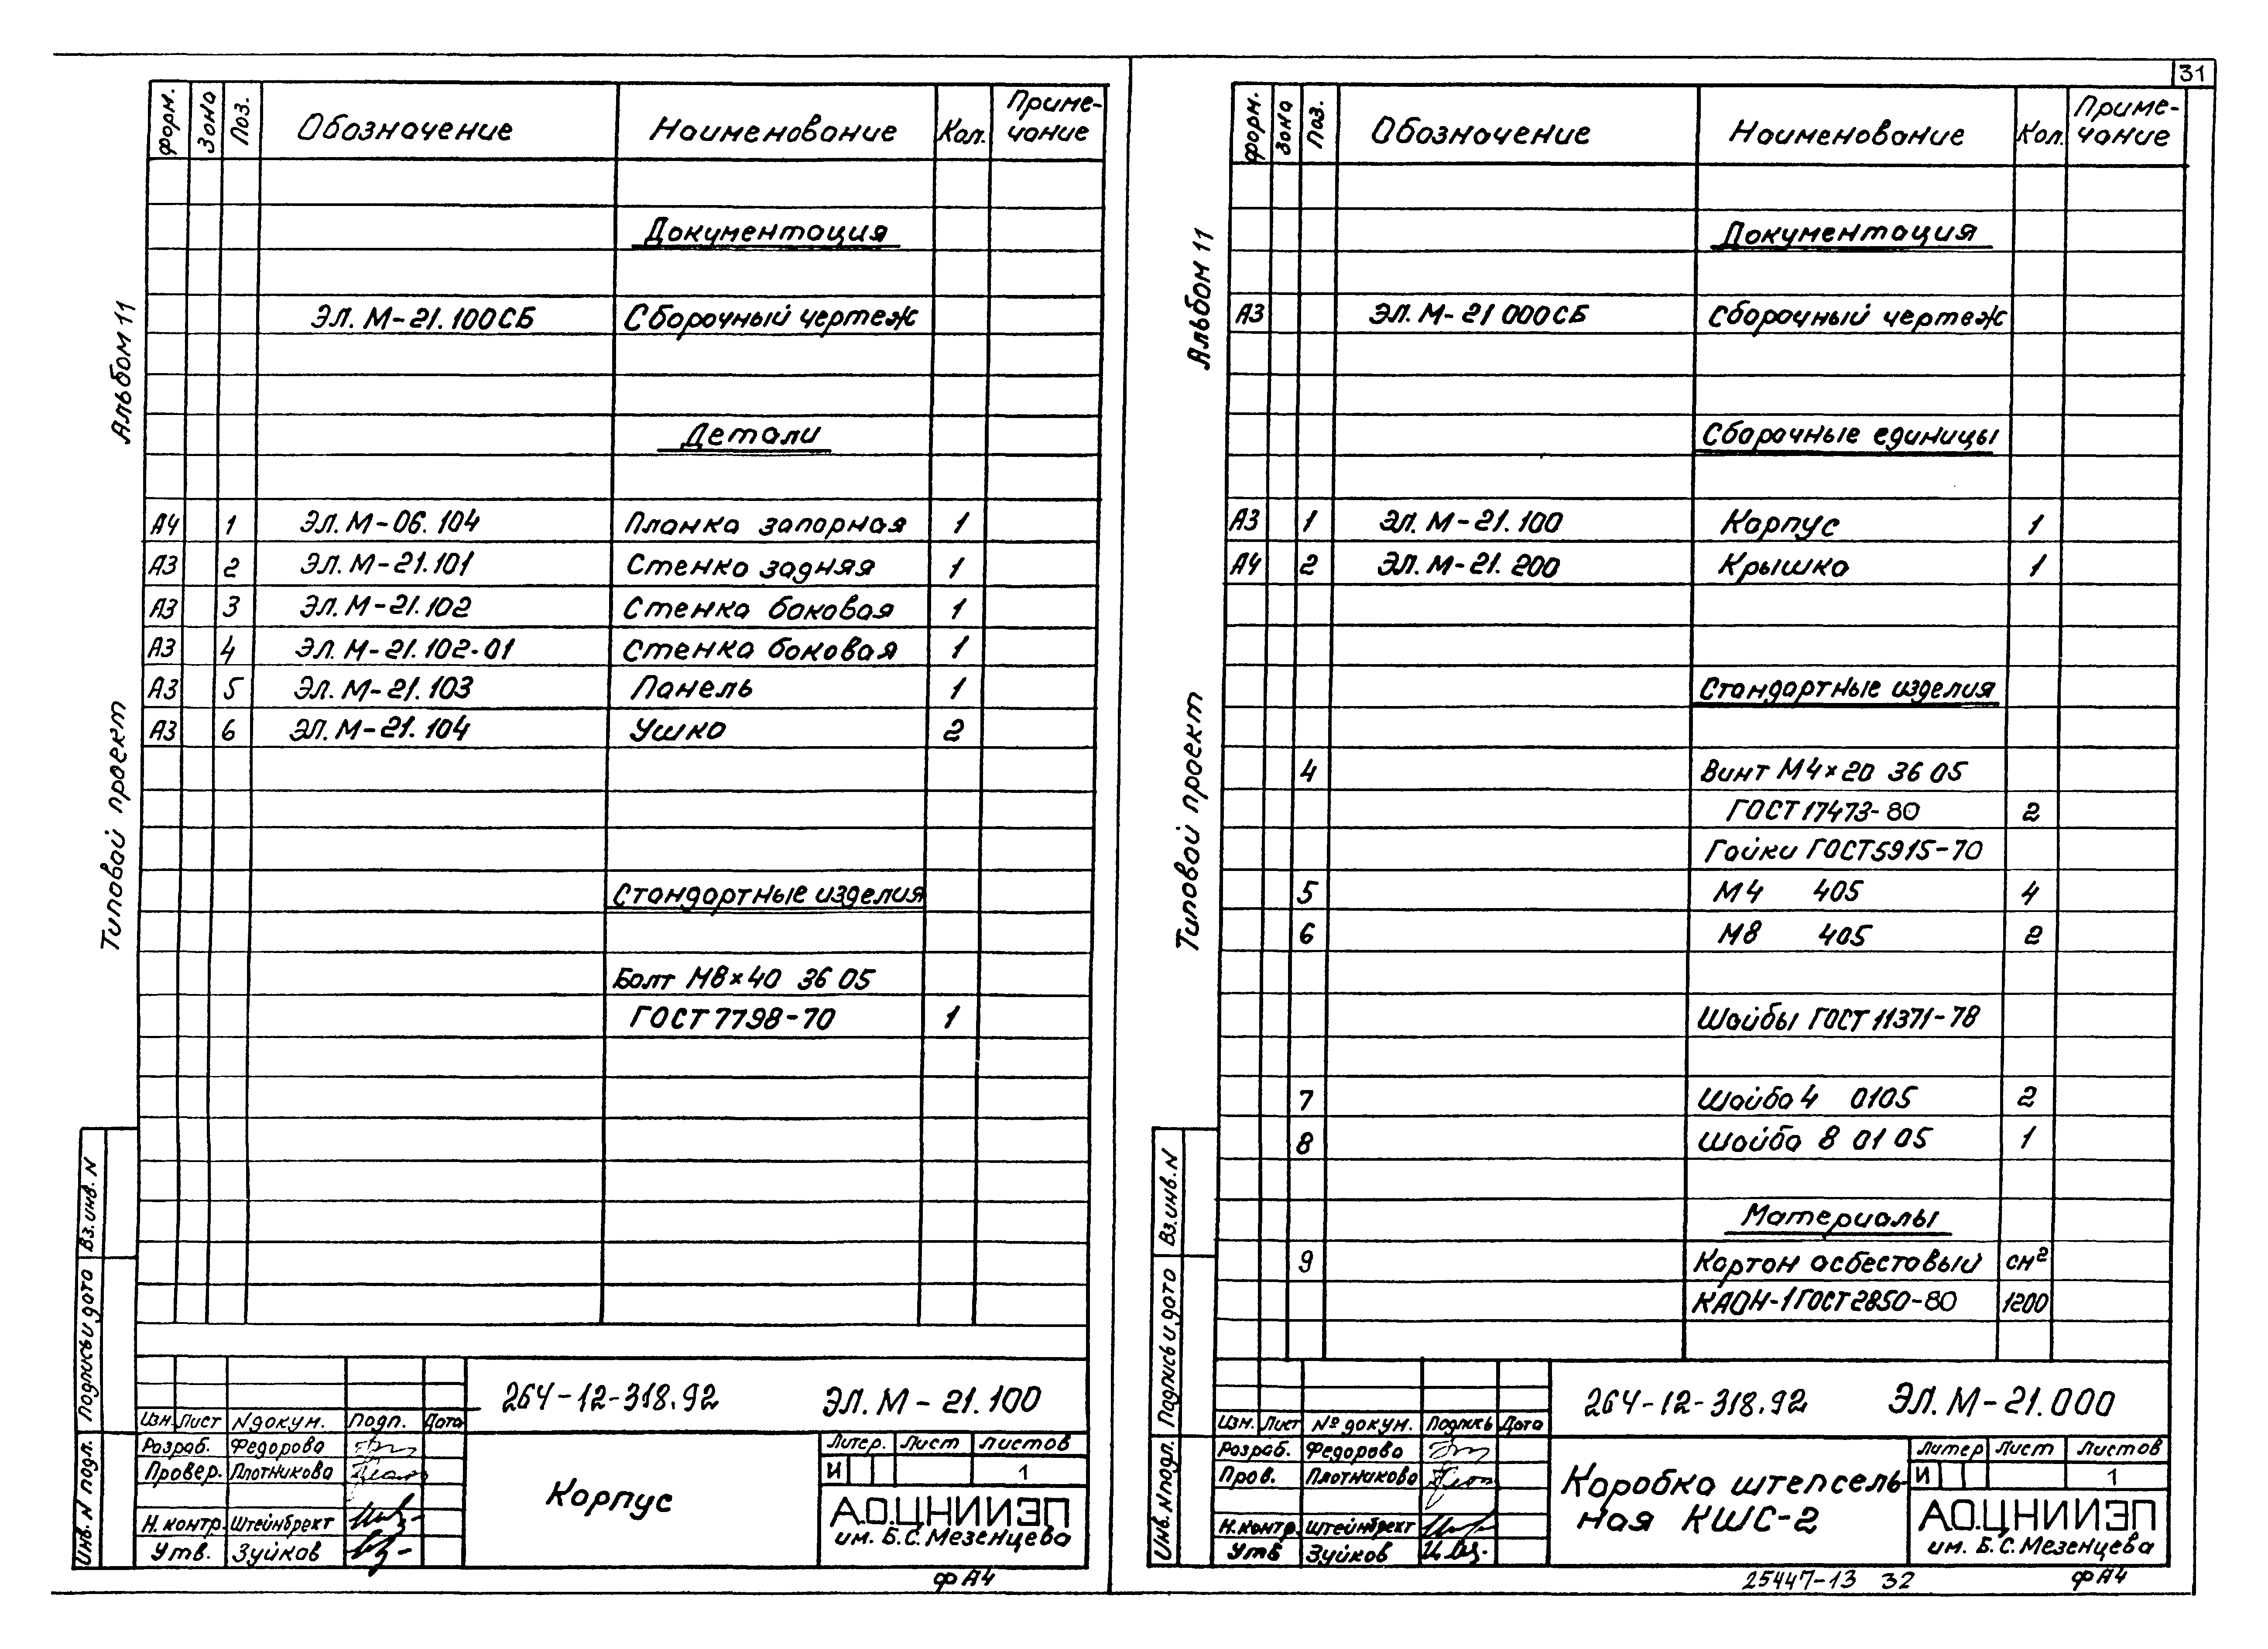 31
Форм. Зона Поз. Обозначение Наименование Кол. Приме-
чание
Документация
ЭЛ. М-21.100СБ Сборочный чертеж
Детали
А4 1 ЭЛ. М-06.104 Планка запорная 1
А3 2 ЭЛ. М-21.101 Стенка задняя 1
А3 3 ЭЛ. М-21.102 Стенка боковая 1
А3 4 ЭЛ. М-21.102-01 Стенка боковая 1
А3 5 ЭЛ. М-21.103 Панель 1
А3 6 ЭЛ. М-21.104 Ушко 2
Стандартные изделия
Болт М8×40 36 05
ГОСТ 7798-70 1
Альбом 11
Типовой проект
Вз. инв. N
Подпись и дата
Инв. N подл.
264-12-318.92 ЭЛ. М-21.100
Изм. Лист N докум. Подп. Дата
Разраб. Федорова
Провер. Плотникова
Н. контр. Штейнбрехт
Утв. Зуйков
Корпус
Литер. Лист Листов
И 1
А.О.ЦНИИЭП
им. Б.С. Мезенцева
ФА4
Форм. Зона Поз. Обозначение Наименование Кол. Приме-
чание
Документация
А3 ЭЛ. М-21 000СБ Сборочный чертеж
Сборочные единицы
А3 1 ЭЛ. М-21.100 Корпус 1
А4 2 ЭЛ. М-21.200 Крышка 1
Стандартные изделия
4 Винт М4×20 36 05
ГОСТ 17473-80 2
Гайки ГОСТ 5915-70
5 М4 405 4
6 М8 405 2
Шайбы ГОСТ 11371-78
7 Шайба 4 0105 2
8 Шайба 8 01 05 1
Материалы
9 Картон асбестовый см²
КАОН-1 ГОСТ 2850-80 1200
Альбом 11
Типовой проект
Вз. инв. N
Подпись и дата
Инв. N подл.
264-12-318.92 ЭЛ. М-21.000
Изм. Лист № докум. Подпись Дата
Разраб. Федорова
Пров. Плотникова
Н. контр. Штейнбрехт
Утв Зуйков
Коробка штепсель-
ная КШС-2
Литер Лист Листов
И 1
А.О.ЦНИИЭП
им. Б.С. Мезенцева
25447-13 32 ФА4